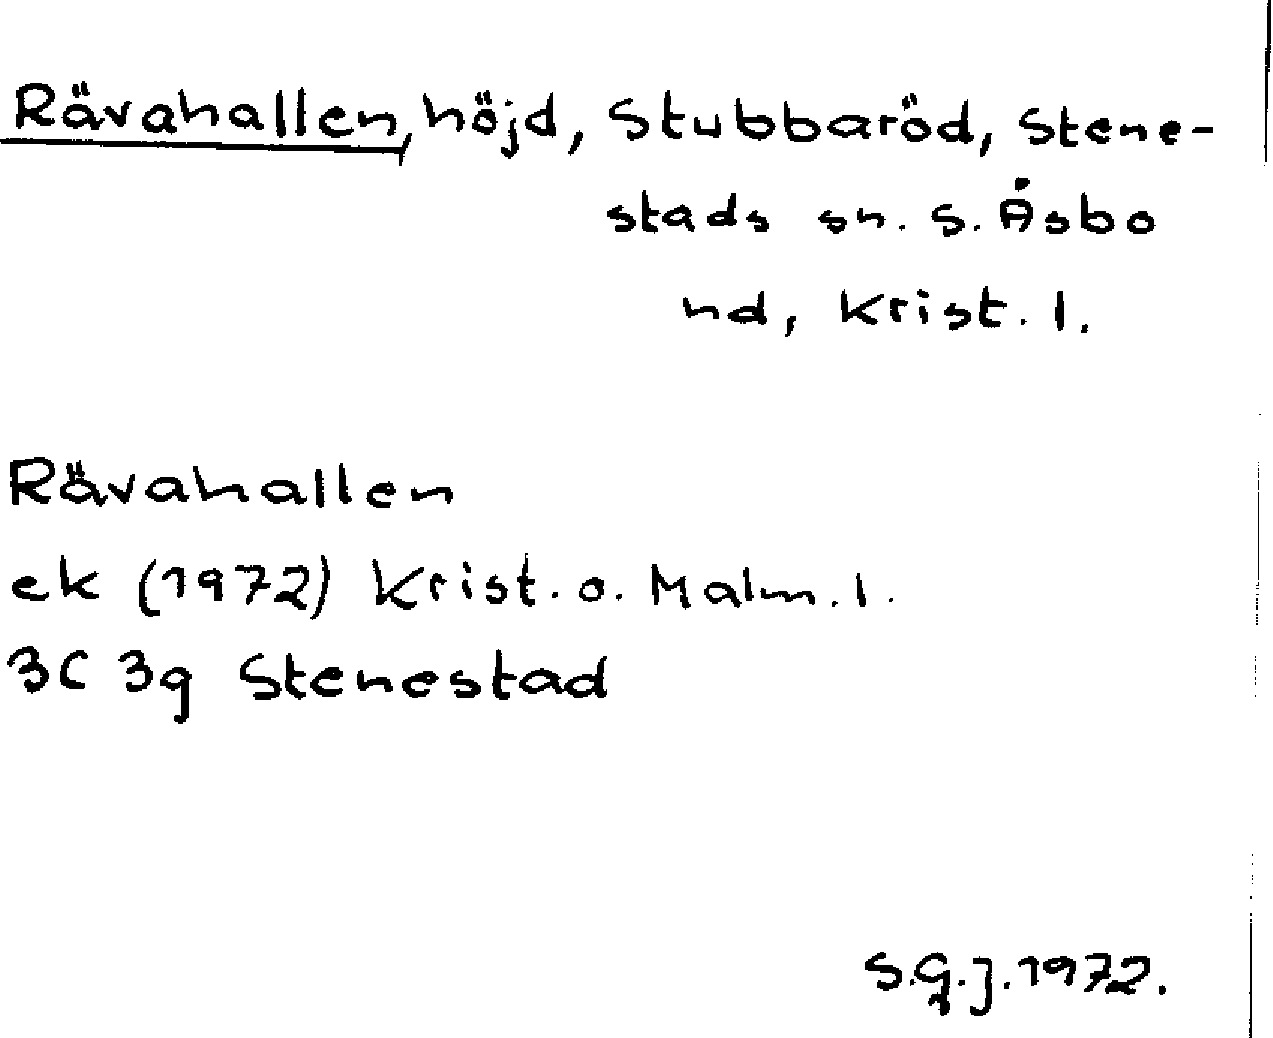 Rävahallen, höjd, Stubbaröd, Stene-
stads sn. S. Åsbo
hd, Krist. l.
Rävahallen
ek (1972) Krist. o. Malm. l.
3C 3g Stenestad
S.G.J. 1972.